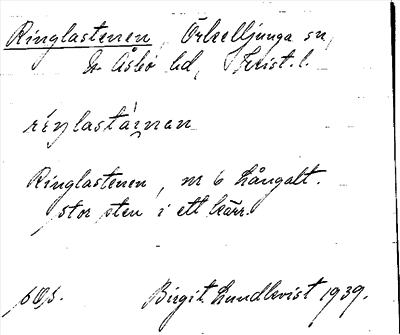 Ringlastenen, Örkelljunga sn,
N. Åsbo hd, Krist. l.
ríŋlastáinan
Ringlastenen, nr 6 Långalt.
stor sten i ett kärr.
Birgit Lundkvist 1939.